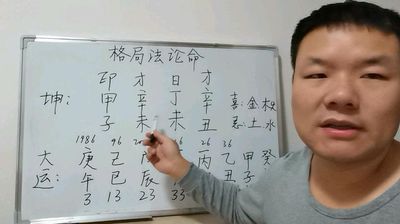 格局法论命
印 才 日 才
坤: 甲 辛 丁 辛 喜: 金
子 未 未 丑 忌: 土 水
1986 96 26 36
大 庚 己 丙 乙 甲 癸
运: 午 巳 辰 丑 子
3 13 23 33